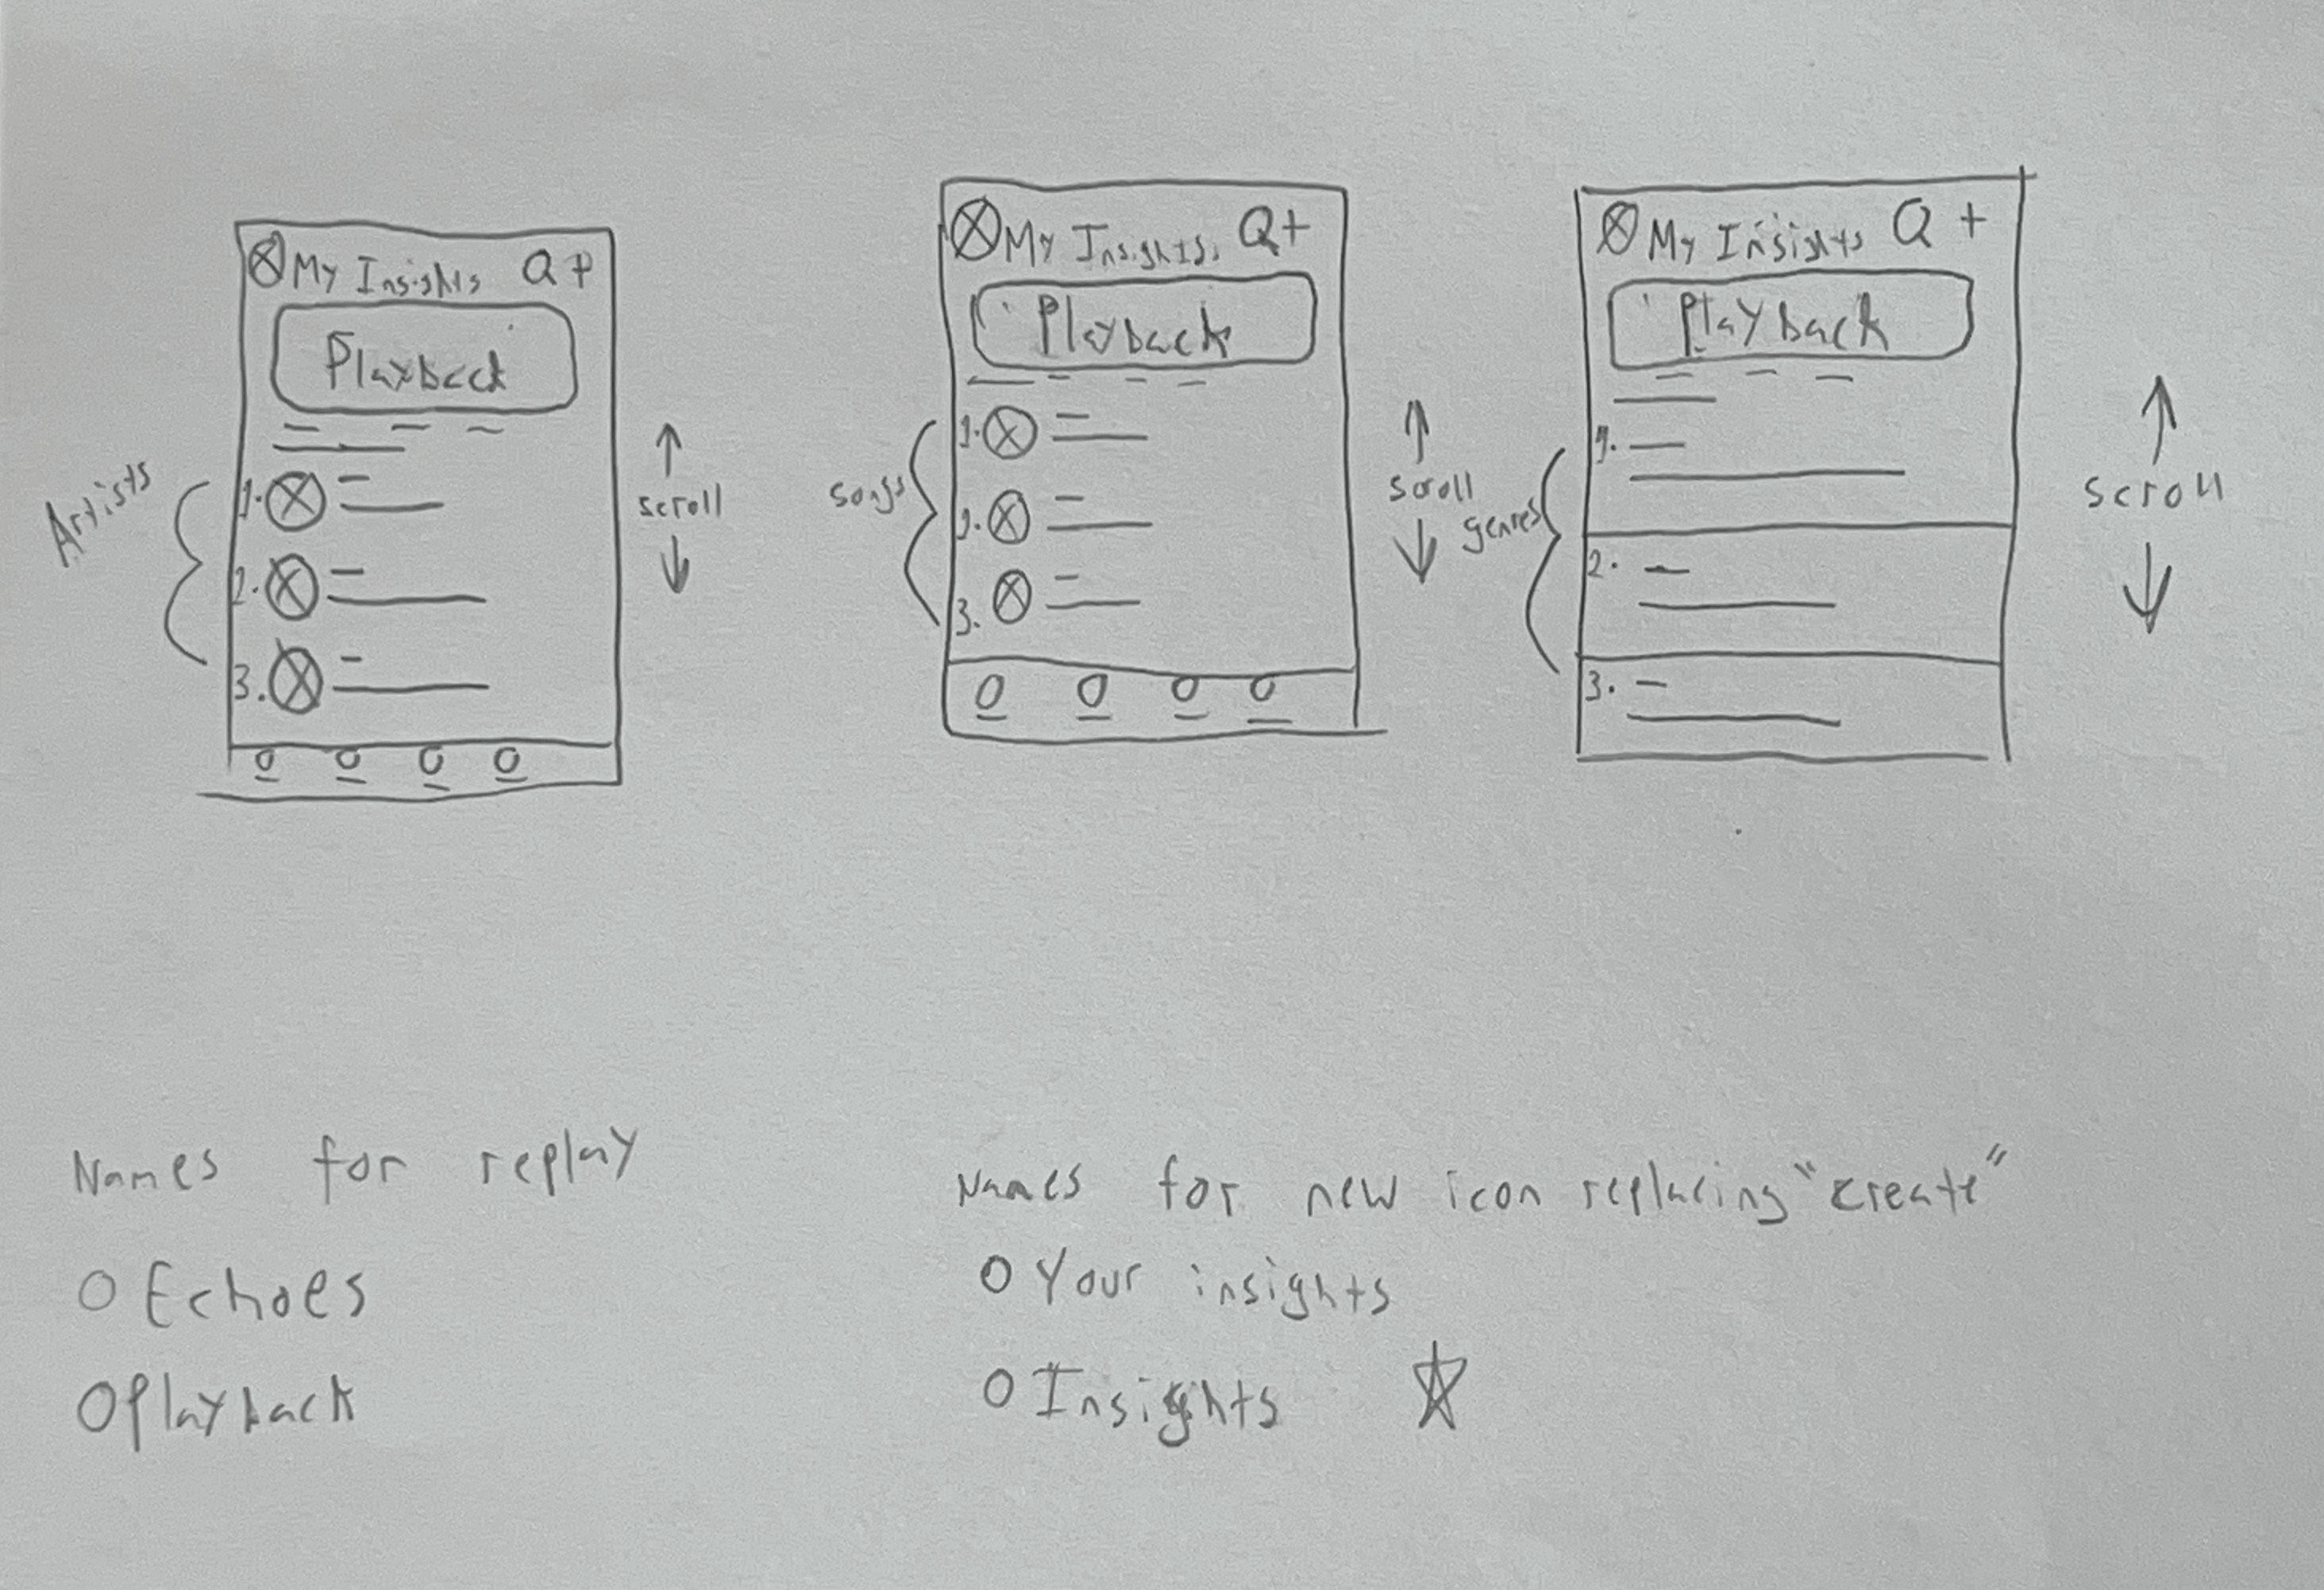 My Insights Q +
Playback
Artists
1.
2.
3.
scroll
My Insights Q+
Playback
songs
1.
2.
3.
scroll
My Insights Q +
Playback
genres
1.
2.
3.
scroll
Names for replay
O Echoes
O Playback
Names for new icon replacing "create"
O Your insights
O Insights